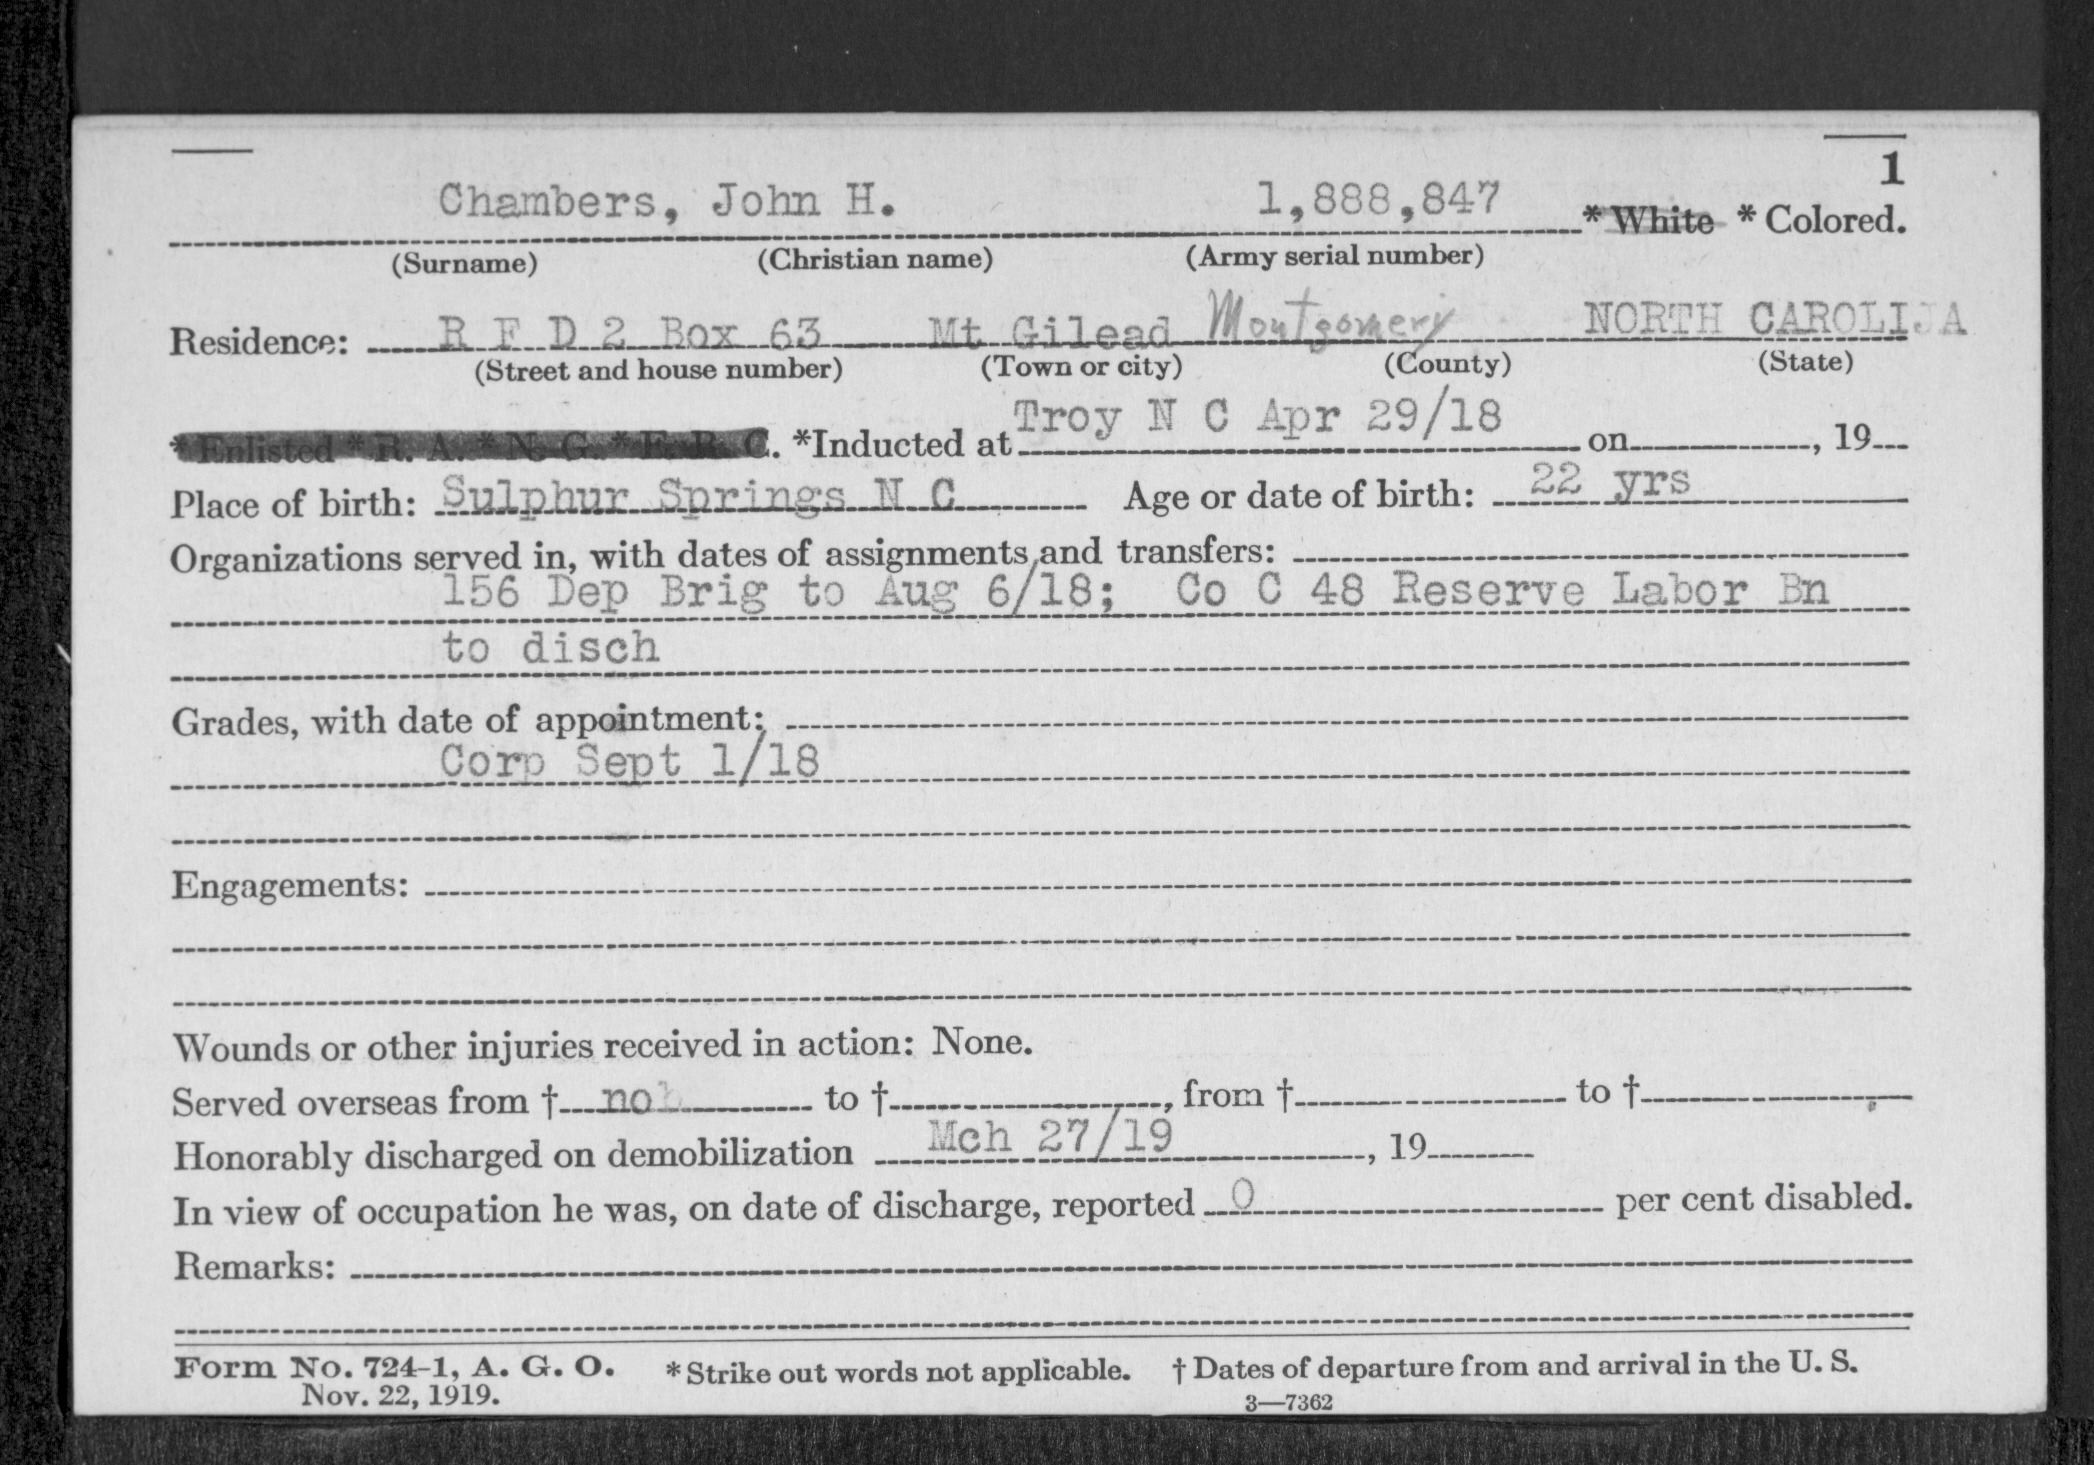 1
Chambers, John H. 1,888,847 * White * Colored.
(Surname) (Christian name) (Army serial number)
Residence: R F D 2 Box 63 Mt Gilead Montgomery NORTH CAROLINA
(Street and house number) (Town or city) (County) (State)
* Enlisted * R. A. * N. G. * E. R. C. *Inducted at Troy N C Apr 29/18 on , 19
Place of birth: Sulphur Springs N C Age or date of birth: 22 yrs
Organizations served in, with dates of assignments and transfers:
156 Dep Brig to Aug 6/18; Co C 48 Reserve Labor Bn
to disch
Grades, with date of appointment:
Corp Sept 1/18
Engagements:
Wounds or other injuries received in action: None.
Served overseas from † no to † , from † to †
Honorably discharged on demobilization Mch 27/19 , 19
In view of occupation he was, on date of discharge, reported 0 per cent disabled.
Remarks:
Form No. 724-1, A. G. O. * Strike out words not applicable. † Dates of departure from and arrival in the U. S.
Nov. 22, 1919. 3—7362